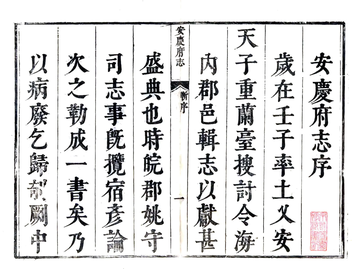 安慶府志序
歲在壬子率土乂安
天子重蘭臺搜討令海
安慶府志
新序
一
內郡邑輯志以獻甚
盛典也時皖郡姚守
司志事旣攬宿彥論
次之勒成一書矣乃
以病廢乞歸